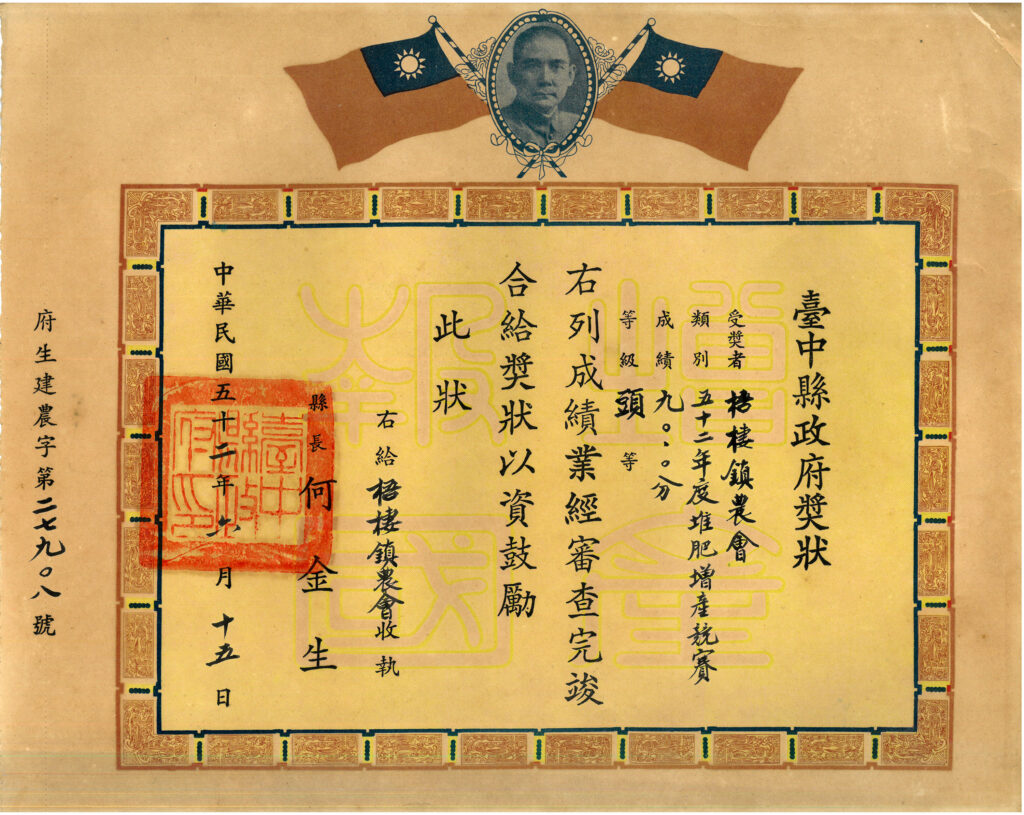 臺中縣政府獎狀
受獎者 梧棲鎮農會
類別 五十二年度堆肥增產競賽
成績 九〇.〇分
等級 頭 等
右列成績業經審查完竣
合給獎狀以資鼓勵
此狀
右給梧棲鎮農會收執
縣長 何金生
中華民國五十二年六月十五日
府生建農字第二七九〇八號
臺中縣政府印